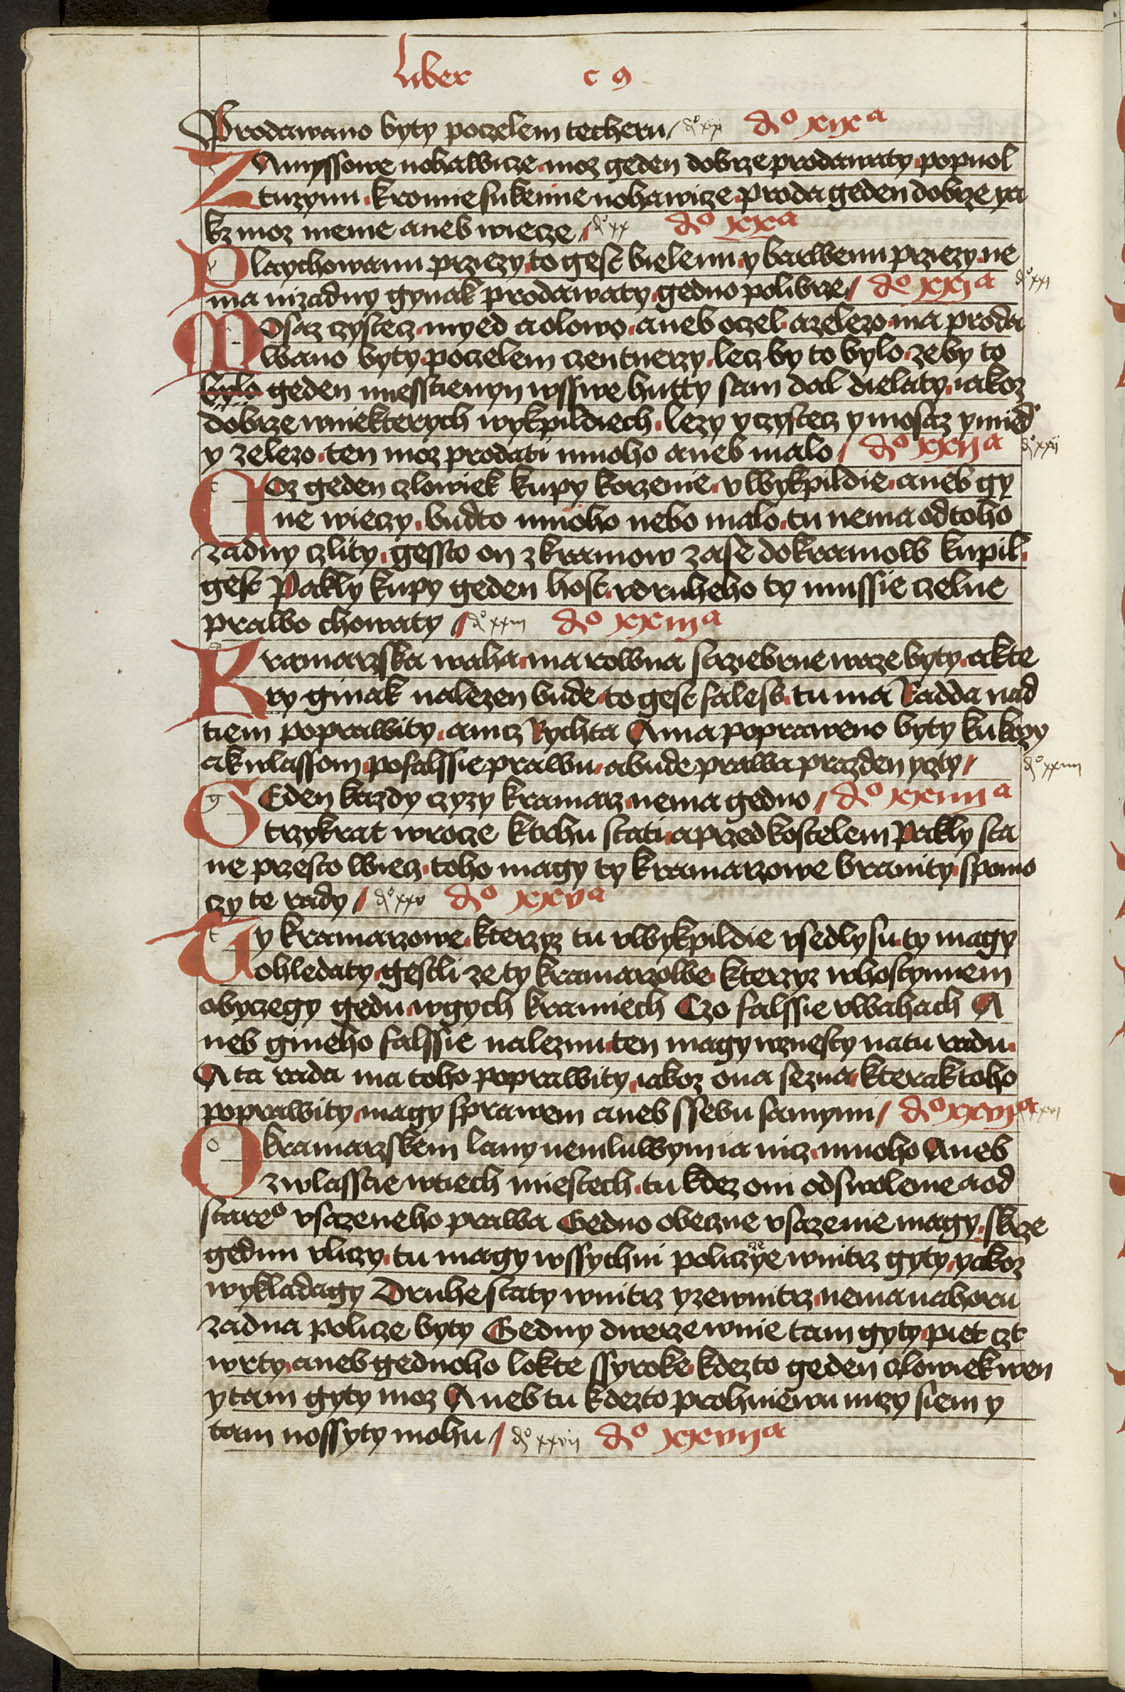 Liber c 9
Prodawano byty poczelem techeru / do xix do xixa
ZAmyssowe nohawicze moz geden dobrze prodawaty popuol
tuzynu kromie sukenne nohawicze proda geden dobrze ya
kz moz menie aneb wiecze / do xx do xxa
Playchowanu przezy to gest bielenu y barwenu przezy ne
ma nizadny gynak prodawaty gedno polibrze / do xxia do xxi
MOsaz czystecz myed a olowo aneb oczel a zelezo ma proda
wano byty poczelem czentnerzy lecz by to bylo ze by to
bylo geden miesstienyn wsswe hutty sam dal dielaty iakoz
dobrze wniekterych wykpildiech lezy y czystecz y mosaz y mied
y zelezo ten moz prodati mnoho aneb malo / do xxiia do xxii
COz geden czlowiek kupy korzenie v Wykpildie aneb gy
ne wieczy budto mnoho nebo malo tu nema odtoho
zadny czlity gessto on z kramow zase do kramow kupil
gest Pakly kupy geden host v druheho ty mussie czelne
prawo chowaty / do xxiii do xxiiia
Kramarzska waha ma rowna strziebrne wrze byty a kte
ry ginak nalezen bude to gest faless tu ma Radda nad
tiem poprawity a nicz Rychta A ma popraweno byty ku kozy
a k wlassom po falssie prawu a bude prawa prazden yzty /
GEden kazdy czyzy kramarz nema gedno / do xxiiiia do xxiiii
trzykrat wrocze k trhu stati a przed kostelem Pakly sta
ne przesto wiecz toho magy ty kramarzowe branity s pomo
czy te rady / do xxv do xxva
Ty kramarzowe kterzyz tu v wykpildie vsedly su ty magy
ohledaty gestli ze ty kramarzowe kterzyz w hostynnem
obyczegy gedu w gych kramiech Czo falssie v wahach A
neb gineho falssie naleznu ten magy wznesty na tu radu
A ta rada ma toho poprawity iakoz ona sezna kterak toho
poprawity magy s prawem aneb s sebu samymi / do xxvia xxvi
O kramarzskem lany nemluwyma nicz mnoho Aneb
zwlasstie wtiech miestech tu kdez oni od swolenie a od
stareo vsazeneho prawa Gedno obeczne vsazenie magy skrze
gednu vliczy tu magy wssychni policzye wnitrz gyty yakoz
wykladagy Druhe staty wnitrz y zewnitrz nema nahoru
zadna policze byty Gedny dwerze wnie tam gyty piet czt
wrty aneb gednoho lokte ssyroke kdezto geden czlowiek wen
y tam gyty moz Aneb tu kdezto prohniewu mzy siem y
tam nossyty mohu / do xxvii do xxviia